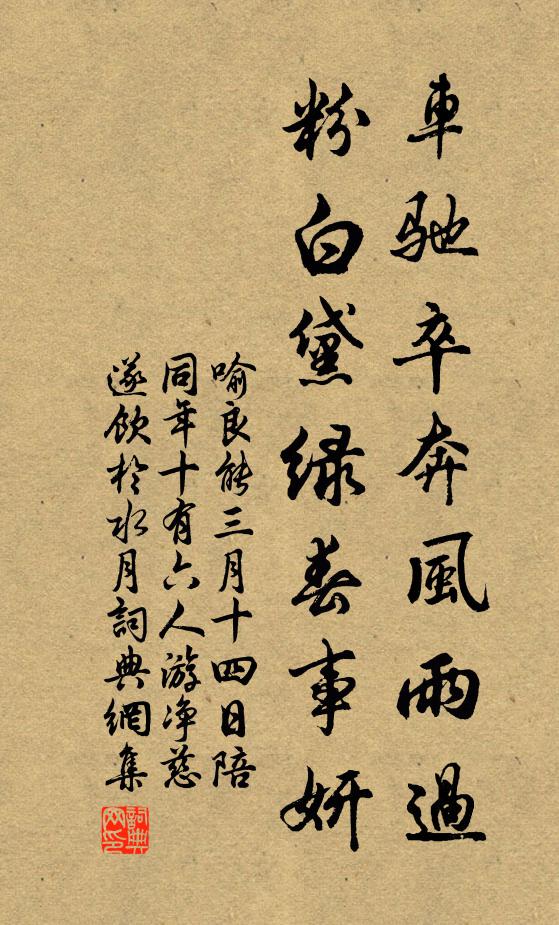 車馳卒奔風雨過
粉白黛緑春事妍
喻良能三月十四日陪
同年十有六人游净慈
遂飲於水月詞典網集
詞典网印